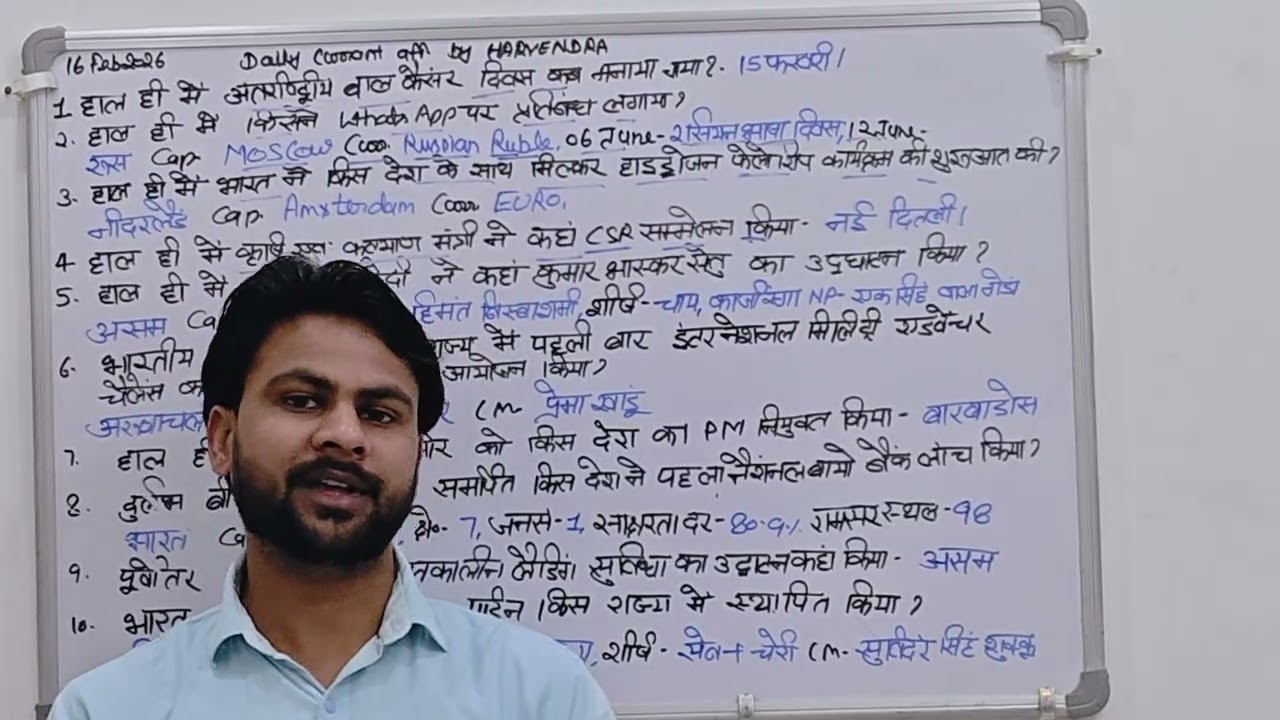 16 Feb 2026 Daily Current aff by HARVENDRA
1 हाल ही में अंतर्राष्ट्रीय बाल कैंसर दिवस कब मनाया गया? - 15 फरवरी।
2. हाल ही में किसने Whats App पर प्रतिबंध लगाया?
रूस Cap Moscow Curr. Russian Ruble, 06 June - रसियन भाषा दिवस, 12 June -
3. हाल ही में भारत ने किस देश के साथ मिलकर हाइड्रोजन फेलोशिप कार्यक्रम की शुरुआत की?
नीदरलैंड Cap. Amsterdam Curr EURO.
4 हाल ही में कृषि एवं कल्याण मंत्री ने कहां CSR सम्मेलन किया - नई दिल्ली।
5. हाल ही में मोदी ने कहां कुमार भास्कर सेतु का उद्घाटन किया?
असम Ca हिमंत बिस्वा शर्मा, शीर्ष - चाय, काजीरंगा NP - एक सिंह वाला गेंडा
6. भारतीय राज्य में पहली बार इंटरनेशनल मिलिट्री एडवेंचर
चैलेंस का आयोजन किया?
अरुणाचल र CM - पेमा खांडू
7. हाल ही को किस देश का PM नियुक्त किया - बारबाडोस
8. दुर्लभ समर्पित किस देश ने पहला नेशनल बायो बैंक लांच किया?
भारत Ca क्षे. - 7, जनसं - 1, साक्षरता दर - 80.9%, रामसर स्थल - 98
9. पूर्वोत्तर तकालीन लैंडिंग सुविधा का उद्घाटन कहां किया - असम
10. भारत किस राज्य में स्थापित किया?
शीर्ष - सेब + चेरी CM - सुखविंदर सिंह सुक्खू